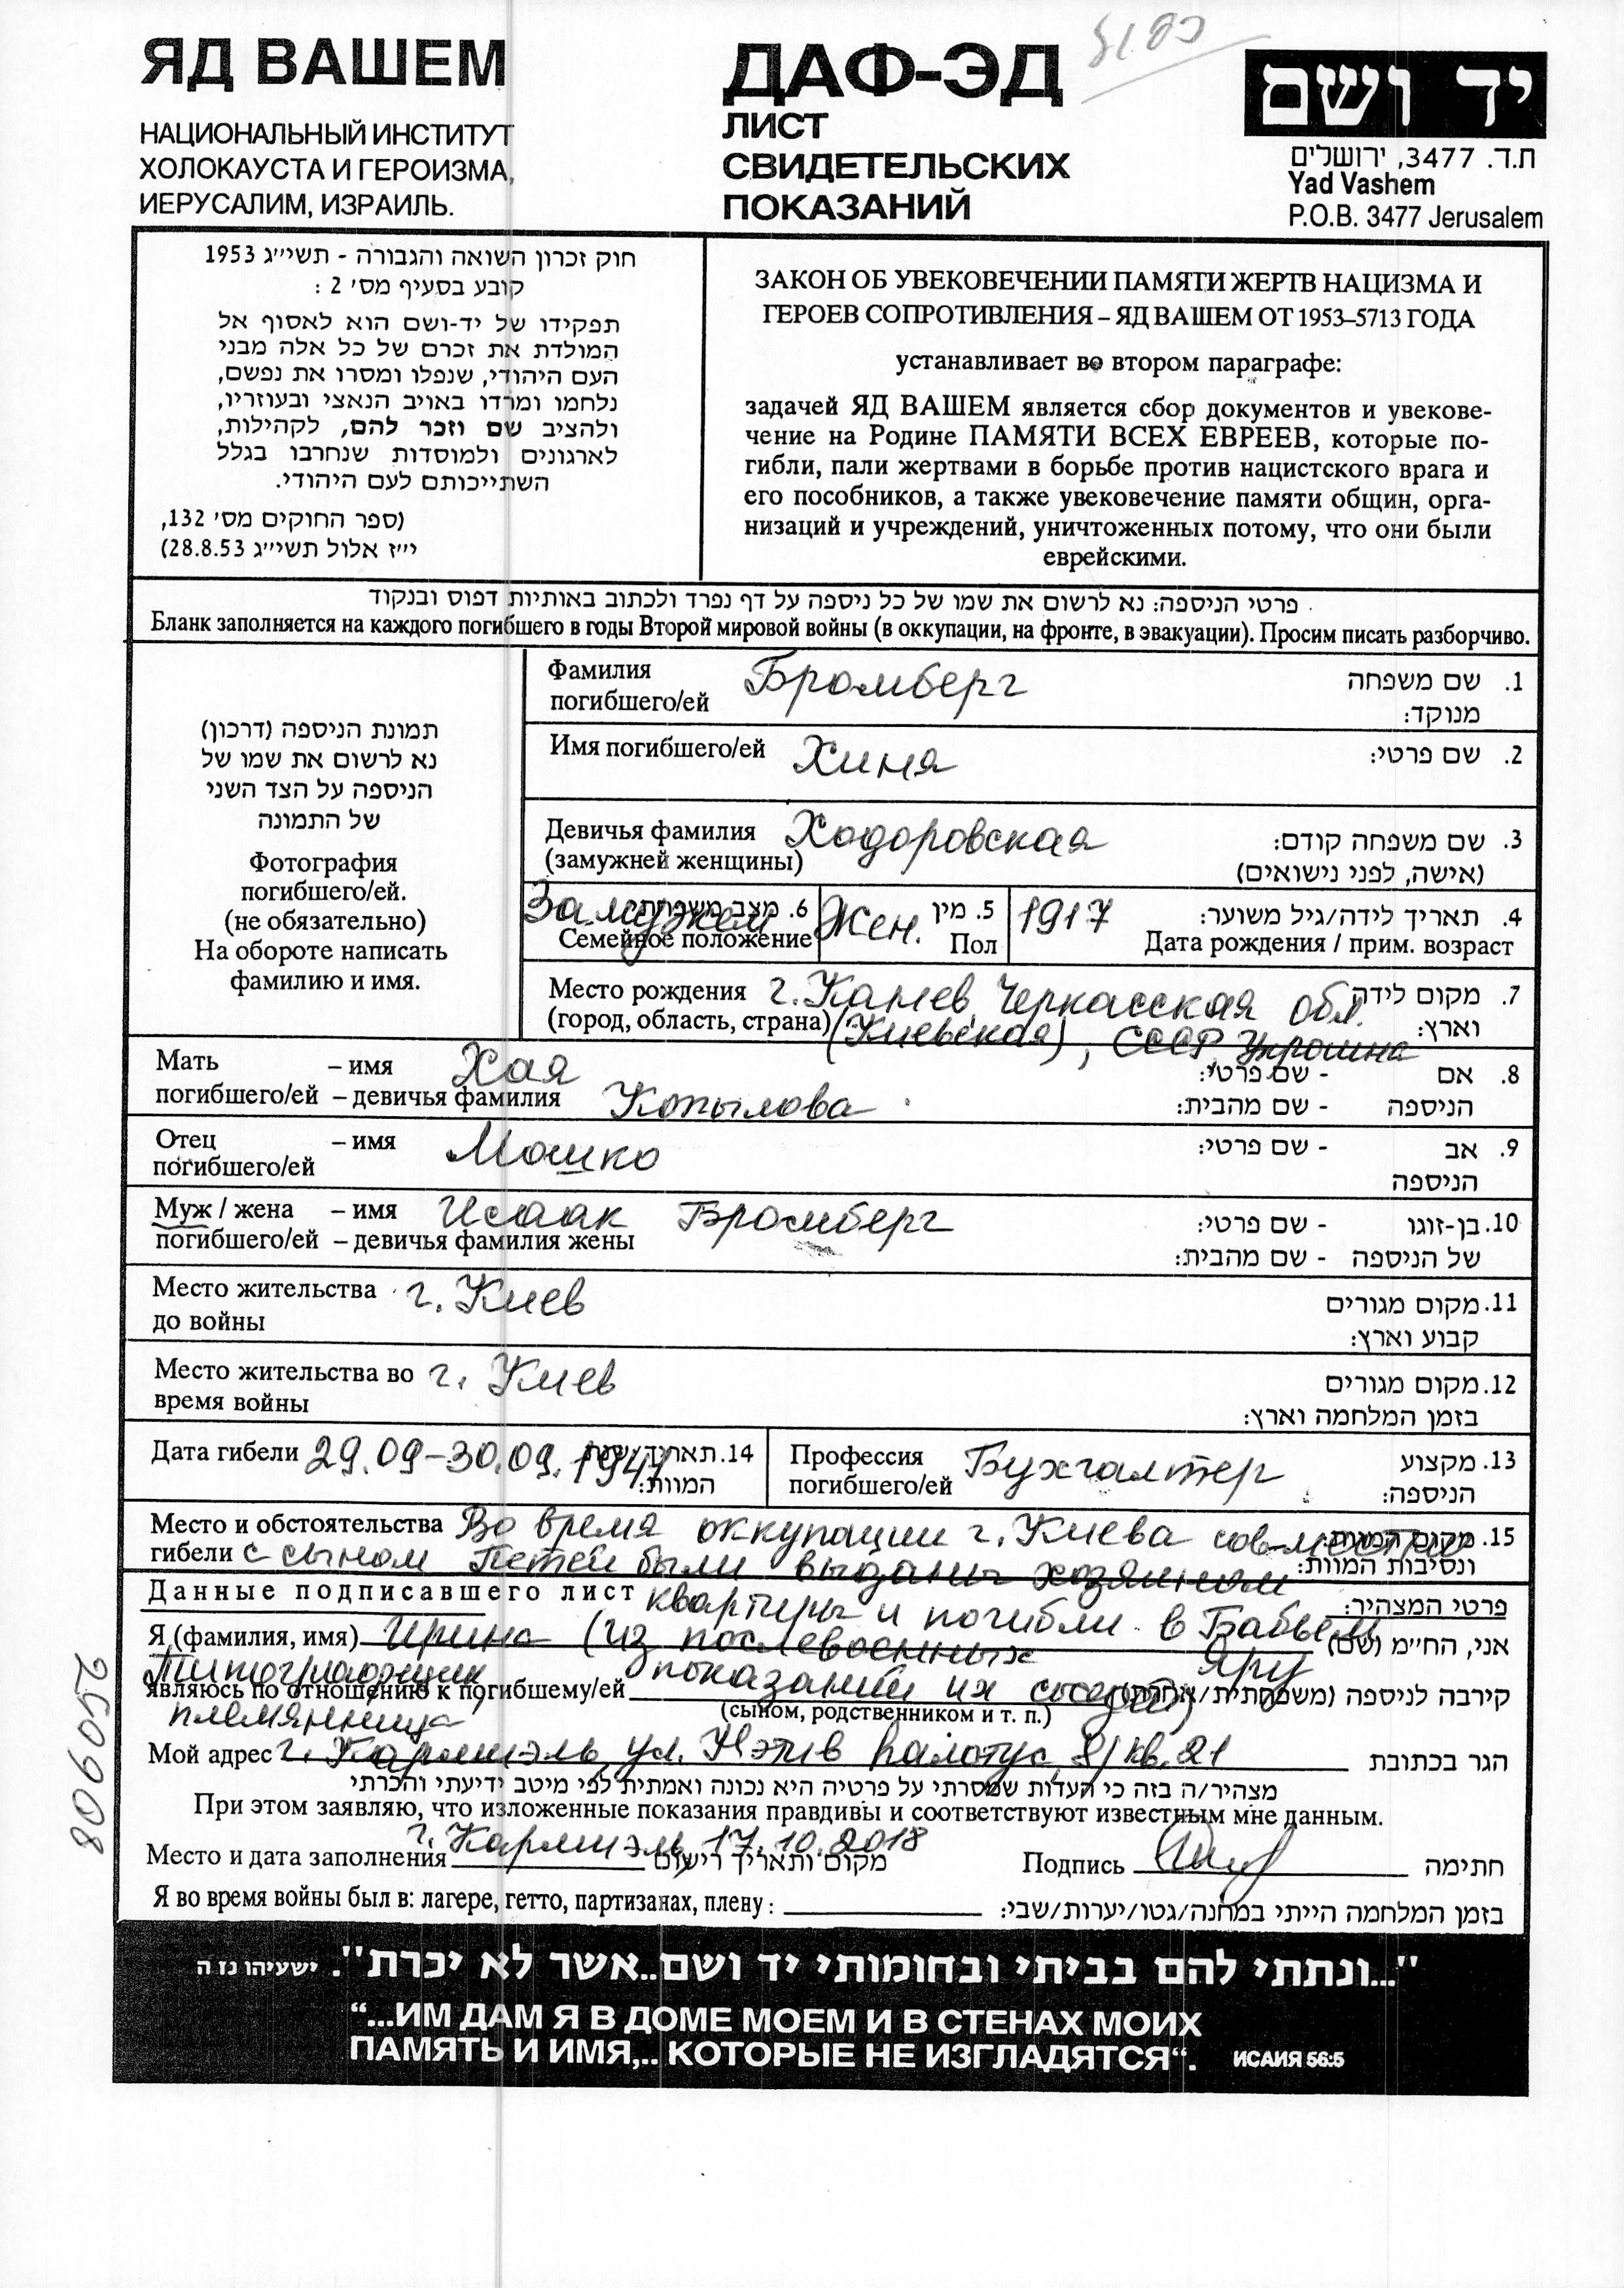 ЯД ВАШЕМ
НАЦИОНАЛЬНЫЙ ИНСТИТУТ
ХОЛОКАУСТА И ГЕРОИЗМА,
ИЕРУСАЛИМ, ИЗРАИЛЬ.
ДАФ-ЭД
ЛИСТ
СВИДЕТЕЛЬСКИХ
ПОКАЗАНИЙ
יד ושם
ת.ד. 3477, ירושלים
Yad Vashem
P.O.B. 3477 Jerusalem
חוק זכרון השואה והגבורה - תשי״ג 1953
קובע בסעיף מס׳ 2 :
תפקידו של יד-ושם הוא לאסוף אל
המולדת את זכרם של כל אלה מבני
העם היהודי, שנפלו ומסרו את נפשם,
נלחמו ומרדו באויב הנאצי ובעוזריו,
ולהציב שם וזכר להם, לקהילות,
לארגונים ולמוסדות שנחרבו בגלל
השתייכותם לעם היהודי.
(ספר החוקים מס׳ 132,
י״ז אלול תשי״ג 28.8.53)
ЗАКОН ОБ УВЕКОВЕЧЕНИИ ПАМЯТИ ЖЕРТВ НАЦИЗМА И
ГЕРОЕВ СОПРОТИВЛЕНИЯ – ЯД ВАШЕМ ОТ 1953–5713 ГОДА
устанавливает во втором параграфе:
задачей ЯД ВАШЕМ является сбор документов и увекове-
чение на Родине ПАМЯТИ ВСЕХ ЕВРЕЕВ, которые по-
гибли, пали жертвами в борьбе против нацистского врага и
его пособников, а также увековечение памяти общин, орга-
низаций и учреждений, уничтоженных потому, что они были
еврейскими.
פרטי הניספה: נא לרשום את שמו של כל ניספה על דף נפרד ולכתוב באותיות דפוס ובנקוד
Бланк заполняется на каждого погибшего в годы Второй мировой войны (в оккупации, на фронте, в эвакуации). Просим писать разборчиво.
תמונת הניספה (דרכון)
נא לרשום את שמו של
הניספה על הצד השני
של התמונה
Фотография
погибшего/ей.
(не обязательно)
На обороте написать
фамилию и имя.
Фамилия Бромберг 1. שם משפחה
погибшего/ей מנוקד:
Имя погибшего/ей Хиня 2. שם פרטי:
Девичья фамилия Ходоровская 3. שם משפחה קודם:
(замужней женщины) (אישה, לפני נישואים)
Замужем 6. מצב משפחתי: Жен. 5. מין 1917 4. תאריך לידה/גיל משוער:
Семейное положение Пол Дата рождения / прим. возраст
Место рождения г. Канев, Черкасская обл. 7. מקום לידה
(город, область, страна) (Киевская), СССР, Украина וארץ:
Мать – имя Хая 8. אם - שם פרטי:
погибшего/ей – девичья фамилия Копылова הניספה - שם מהבית:
Отец – имя Мошко 9. אב - שם פרטי:
погибшего/ей הניספה
Муж / жена – имя Исаак Бромберг 10. בן-זוגו - שם פרטי:
погибшего/ей – девичья фамилия жены של הניספה - שם מהבית:
Место жительства г. Киев 11. מקום מגורים
до войны קבוע וארץ:
Место жительства во г. Киев 12. מקום מגורים
время войны בזמן המלחמה וארץ:
Дата гибели 29.09-30.09.1941 14. תאריך/שנת Профессия Бухгалтер 13. מקצוע
המוות: погибшего/ей הניספה:
Место и обстоятельства Во время оккупации г. Киева совместно 15. מקום המוות
гибели с сыном Петей были выданы хозяином ונסיבות המוות:
Данные подписавшего лист квартиры и погибли в Бабьем פרטי המצהיר:
Я, (фамилия, имя) Ирина (из послевоенных Яру אני, הח״מ (שם)
показаний их соседей)
являюсь по отношению к погибшему/ей קירבה לניספה (משפחתית/אחרת)
племянница (сыном, родственником и т. п.)
Мой адрес г. Кармиэль, ул. Нэтив 8/кв. 21 הגר בכתובת
מצהיר/ה בזה כי העדות שמסרתי על פרטיה היא נכונה ואמתית לפי מיטב ידיעתי והכרתי
При этом заявляю, что изложенные показания правдивы и соответствуют известным мне данным.
Место и дата заполнения г. Кармиэль, 17.10.2018 מקום ותאריך רישום Подпись חתימה
Я во время войны был в: лагере, гетто, партизанах, плену: בזמן המלחמה הייתי במחנה/גטו/יערות/שבי:
250908
"...ונתתי להם בביתי ובחומותי יד ושם..אשר לא יכרת". ישעיהו נז ה
“...ИМ ДАМ Я В ДОМЕ МОЕМ И В СТЕНАХ МОИХ
ПАМЯТЬ И ИМЯ,.. КОТОРЫЕ НЕ ИЗГЛАДЯТСЯ“. ИСАИЯ 56:5